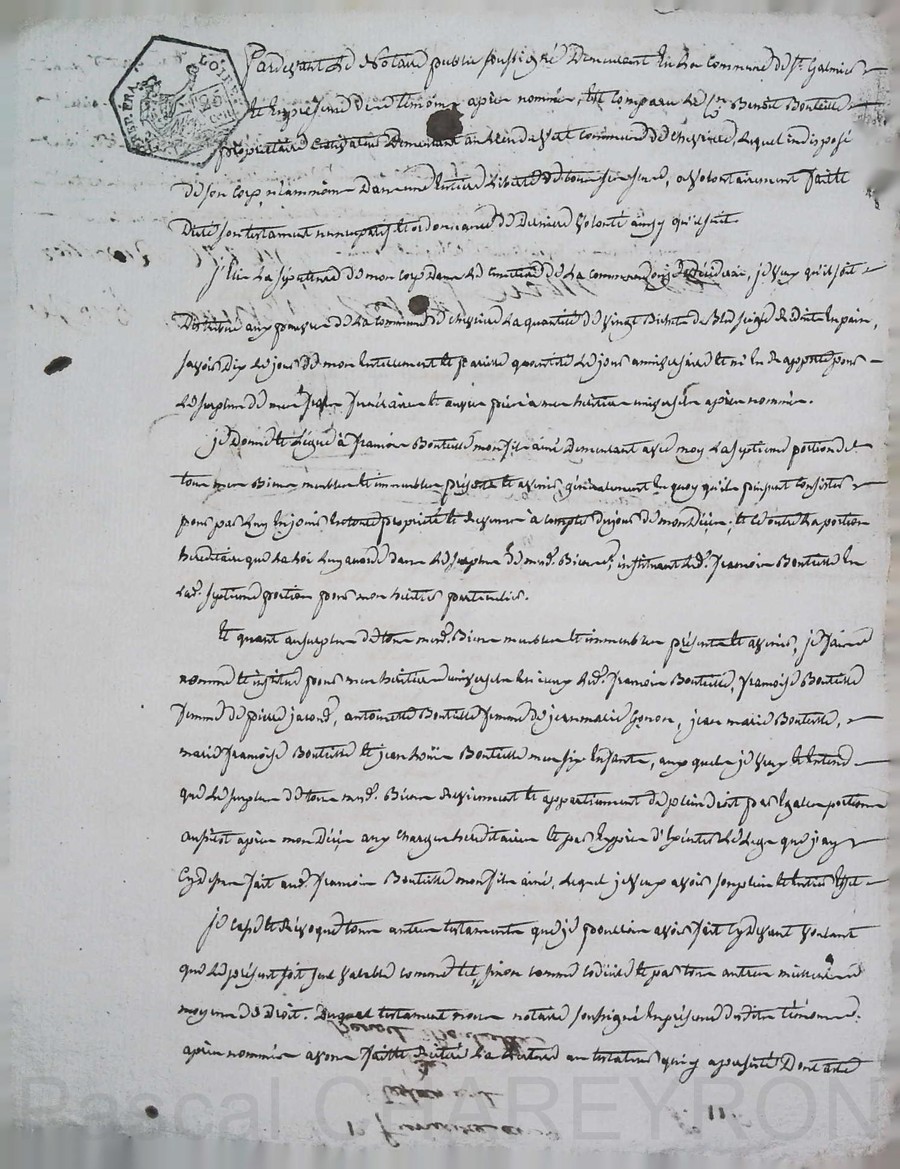 Pardevant Le Notaire public soussigné Demeurant En La Commune de St. Galmier
Et En presence des temoins apres nommés, Est Comparu Le Cn. Benoit Bouteille
propriétaire Cultivateur Demeurant au commune de chevrieres, Lequel indisposé
de son Corps, néammoins Dans une Entiere Liberté de tous ses sens, a volontairement fait et
Dicté son testament nuncupatif et ordonnance de Derniere Volonté ainsy qu'il suit
J'Elie La sepulture de mon Corps Dans Le Cimetiere de La commune, je veux qu'il soit
Distribué aux pauvres de La commune de chevrieres La quantité de vingt Bichets de Bled seigle reduite En pain,
savoir Dix Le jour de mon Enterrement et pareille quantité Le jour anniversaire et m'En Rapporte pour
Le surplus de mes frais funeraires et autres prieres a mes heritiers universels apres nommés.
je Donne et Legue à francois Bouteille mon fils ainé Demeurant avec moy La septieme portion de
tous mes Biens meubles et immeubles présents et avenir, généralement En quoy qu'ils puissent Consister
pour par Luy En jouir En toute propriété et revenu à Compter du jour de mon Décès, et ce outre La portion
hereditaire que La Loi Luy accorde dans Le surplus de mesd. Biens, instituant Led. francois Bouteille En
Lad. septieme portion pour mon héritier particulier.
Et quant au surplus de tous mesd. Biens meubles et immeubles présents et avenir, je fais
nomme et institue pour mes heritiers universels Led. francois Bouteille, francoise Bouteille
femme de pierre jacoud, antoinette Bouteille femme de jean marie Gonon, jean marie Bouteille,
marie francoise Bouteille et jean Bouteille mes six Enfants, auxquels je veux et Entend
que Le surplus de tous mesd. Biens reviennent et appartiennent de plein droit par Egales portions
aussitot apres mon Décès aux charges hereditaires et par Exprès d'Executer Le Legs que j'ay
Cydessus fait aud. francois Bouteille mon fils ainé, Lequel je veux avoir son plein et Entier Effet
je Casse et révoque tous autres testaments que je pourrois avoir fait Cy devant voulant
que Le présent soit seul valable comme tel, sinon comme Codicile et par tous autres
moyens de Droit. Duquel testament nous notaire soussigné En présence desdits témoins
apres nommés avons faitte Reiterée La Lecture au testateur qui y a persisté Dont acte
LOIRE
25
Cen
Pascal CHAREYRON